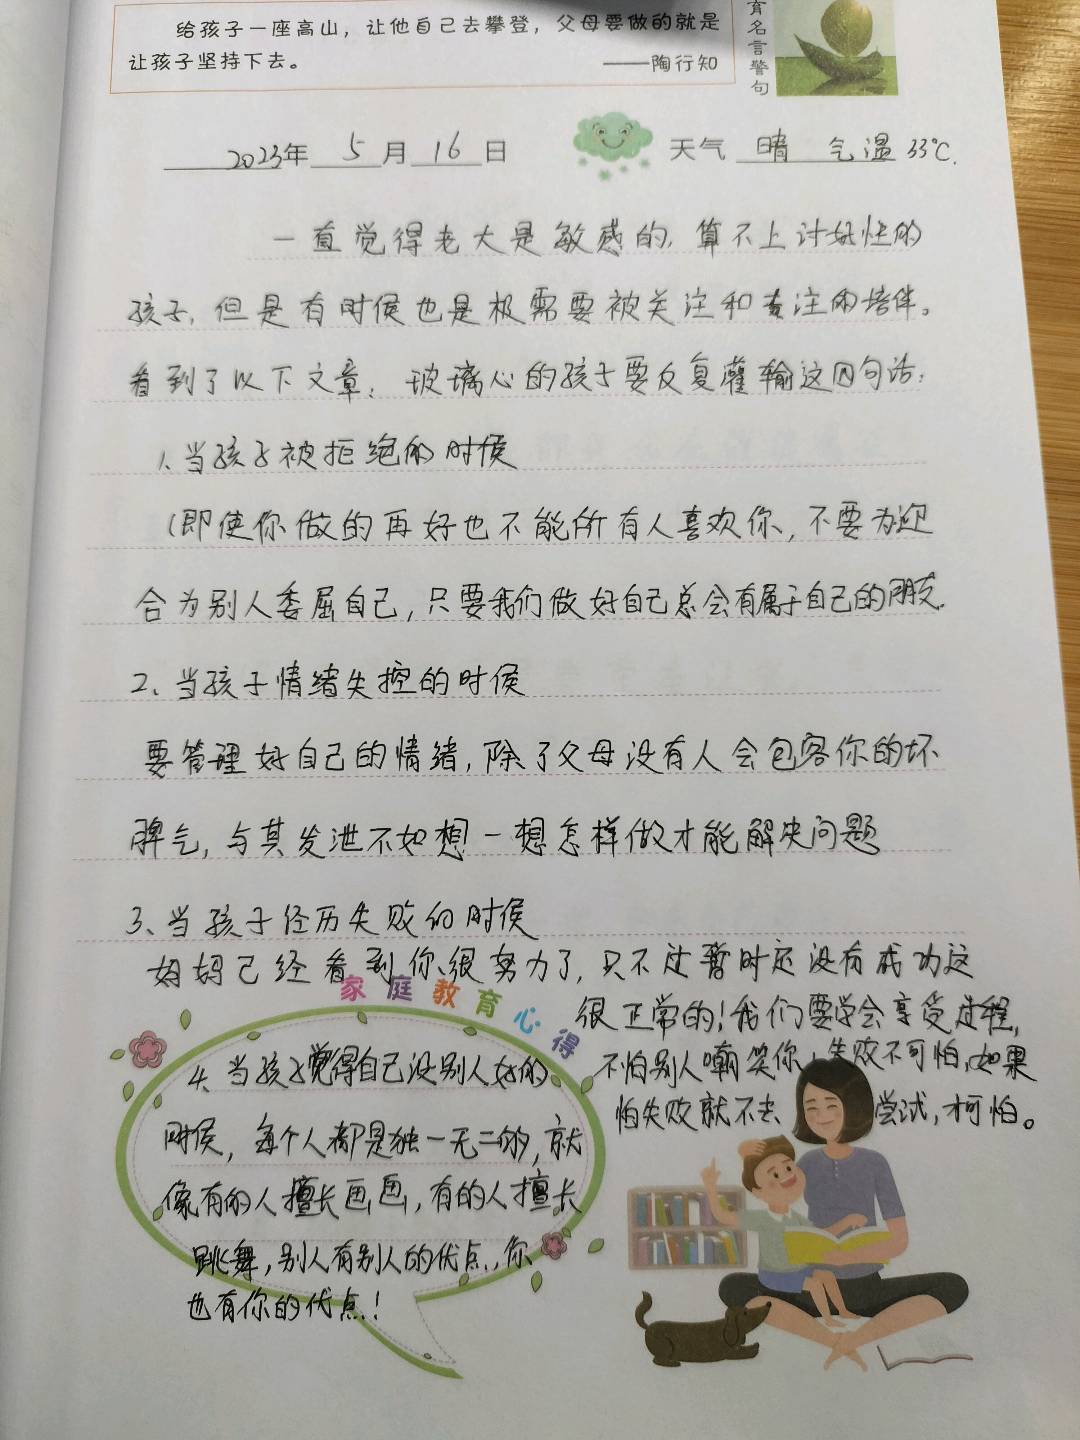 给孩子一座高山，让他自己去攀登，父母要做的就是
让孩子坚持下去。 ——陶行知
育名言警句
2023年 5 月 16 日 天气 晴 气温 33℃.
一直觉得老大是敏感的，算不上讨好性的
孩子，但是有时候也是极需要被关注和专注的陪伴。
看到了以下文章：玻璃心的孩子要反复灌输这四句话：
1、当孩子被拒绝的时候
(即使你做的再好也不能所有人喜欢你，不要为迎
合为别人委屈自己，只要我们做好自己总会有属于自己的朋友.
2、当孩子情绪失控的时候
要管理好自己的情绪，除了父母没有人会包容你的坏
脾气，与其发泄不如想一想怎样做才能解决问题
3、当孩子经历失败的时候
妈妈已经看到你很努力了，只不过暂时还没有成功这
很正常的！我们要学会享受过程，
不怕别人嘲笑你，失败不可怕，如果
怕失败就不去尝试，才可怕。
家庭教育心得
4、当孩子觉得自己没别人好的
时候，每个人都是独一无二的，就
像有的人擅长画画，有的人擅长
跳舞，别人有别人的优点，你
也有你的优点！